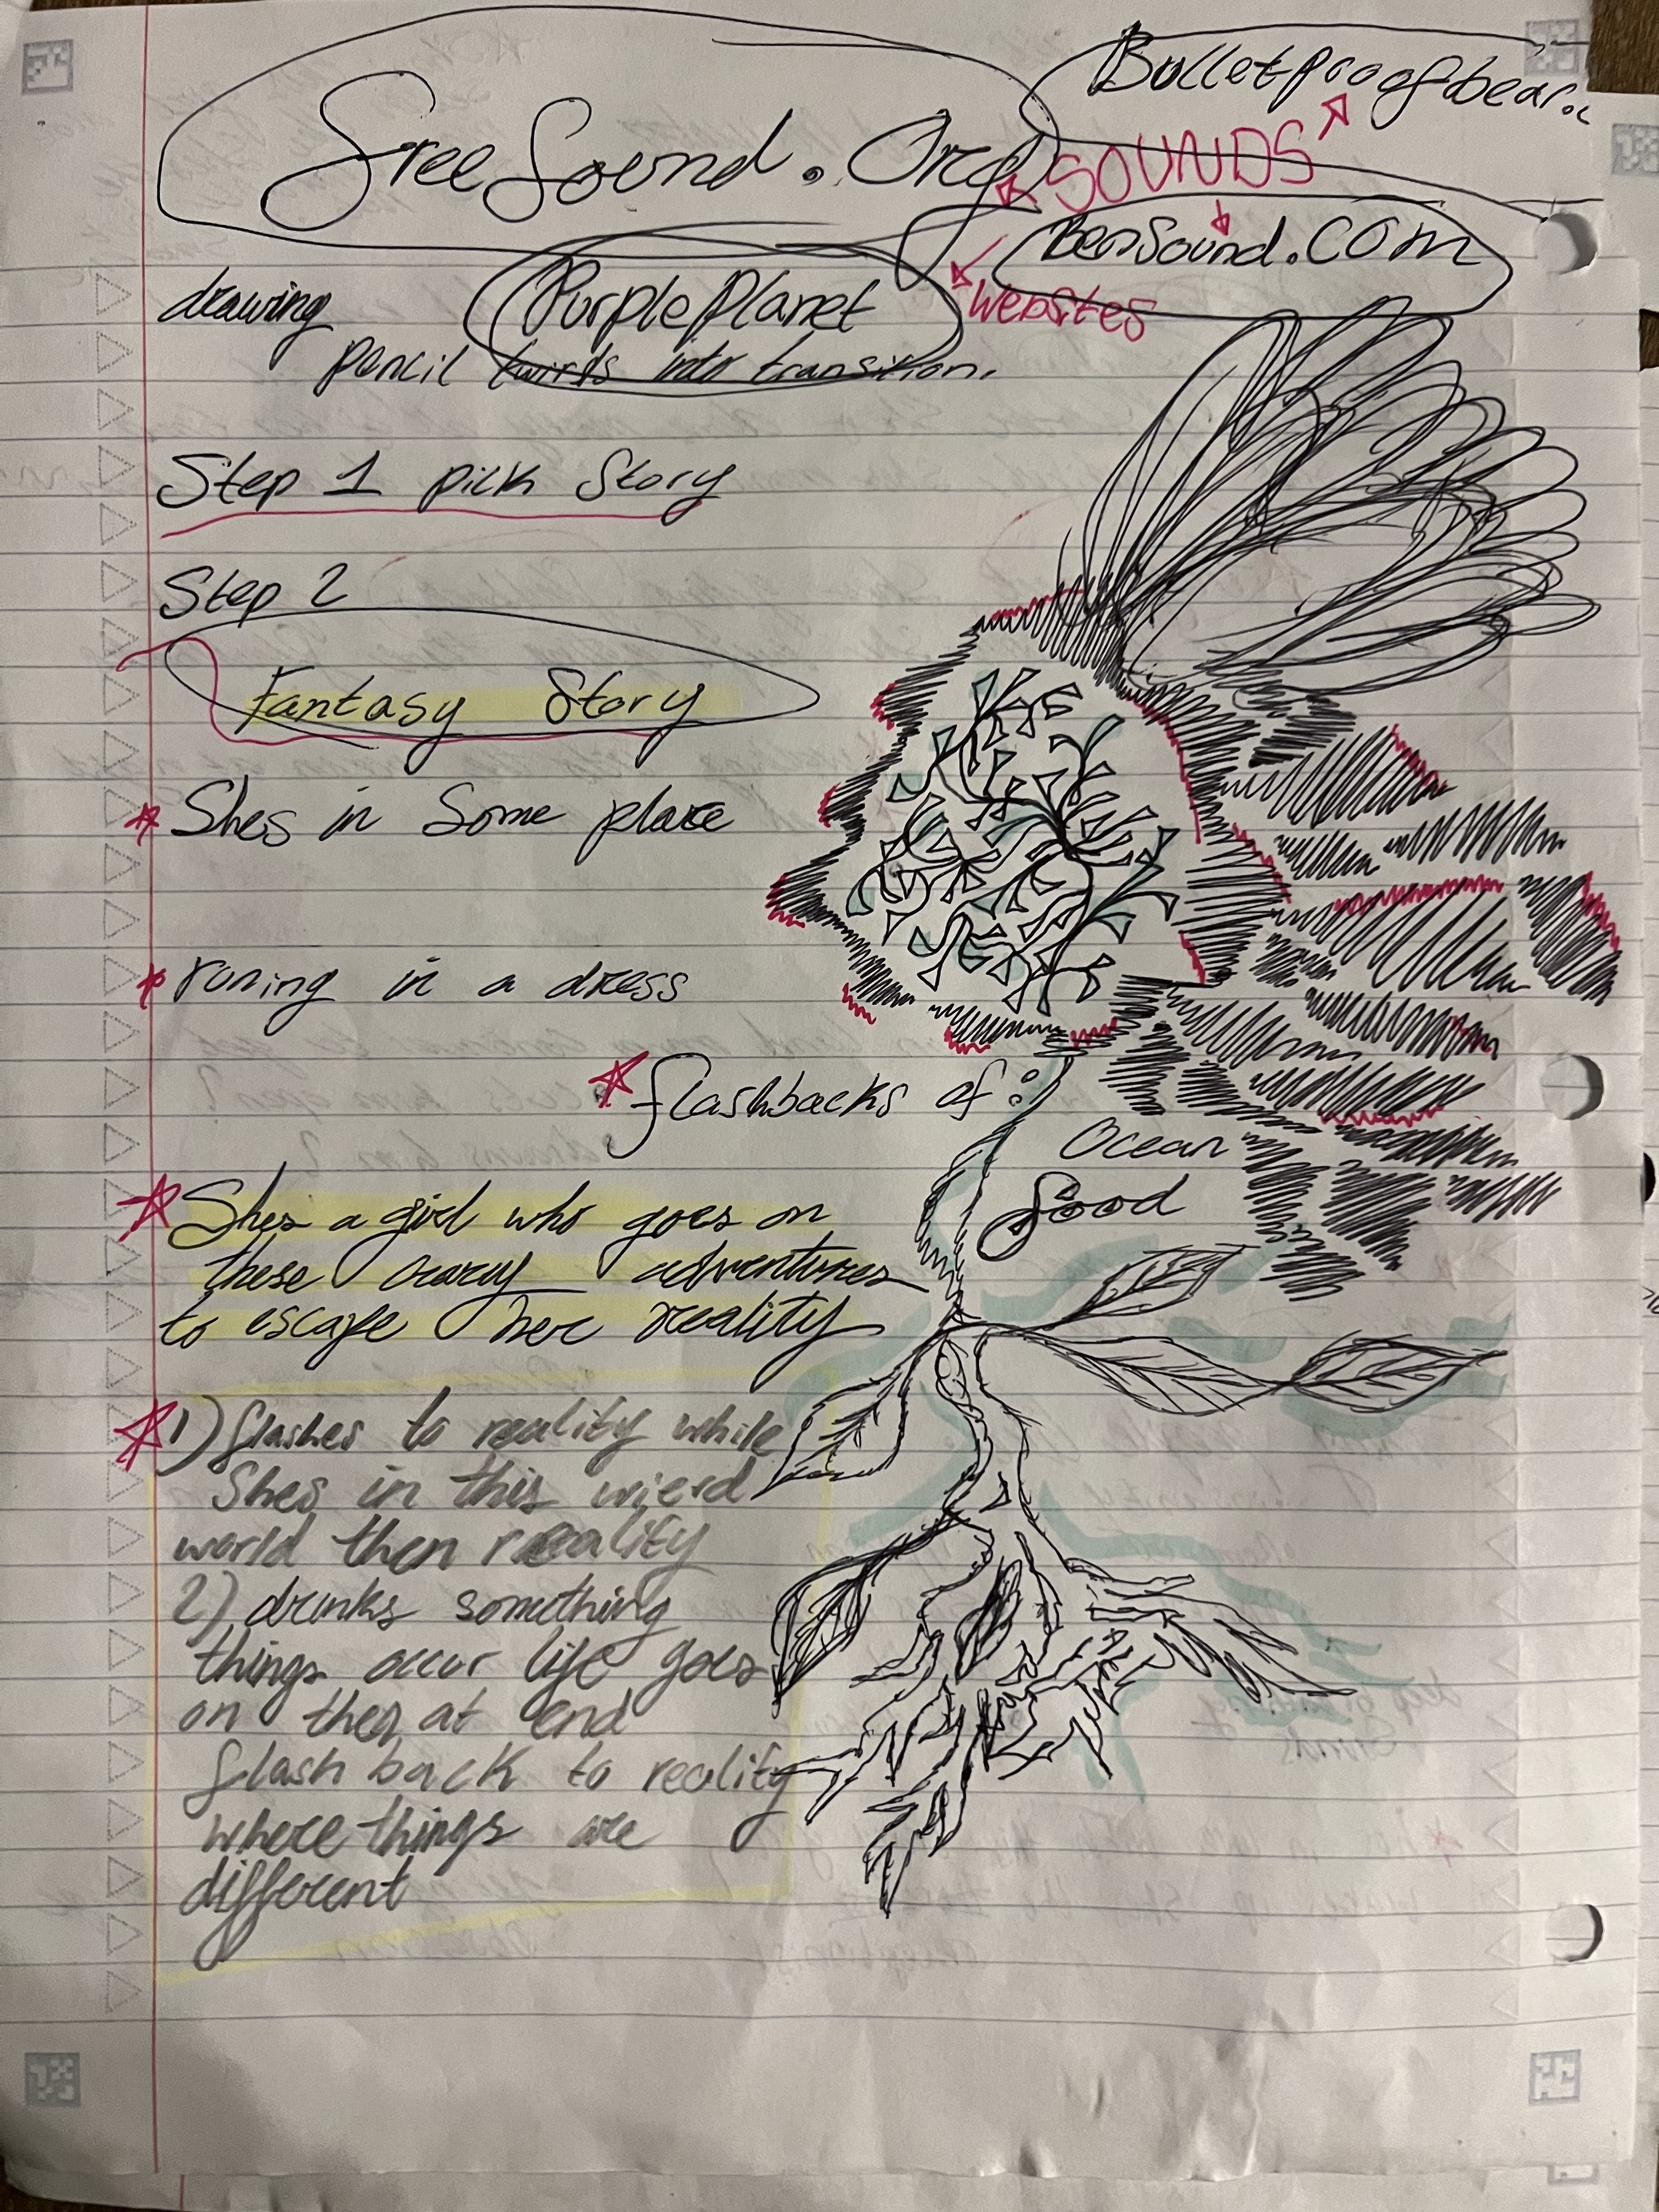 FreeSound.Org
Bulletproofbear.c
SOUNDS
BenSound.com
drawing
PurplePlanet
Websites
pencil twirls into transition.
Step 1 pick Story
Step 2
Fantasy Story
Shes in some place
runing in a dress
flashbacks of:
Ocean
food
Shes a girl who goes on
these crazy adventures
to escape her reality
1) flashes to reality while
Shes in this wierd
world then reality
2) drinks something
things occur life goes
on then at end
flash back to reality
where things are
different